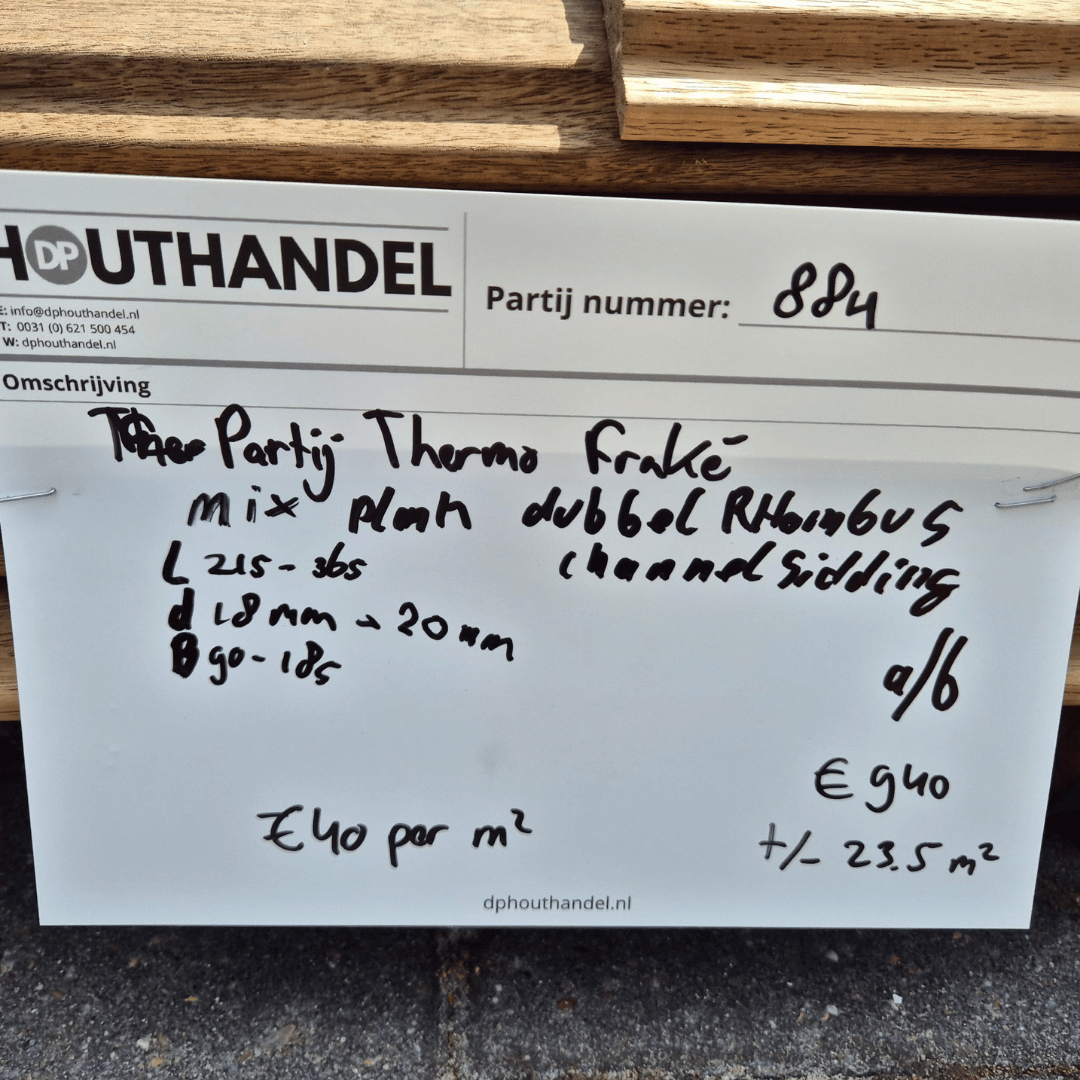 HOUTHANDEL
DP
E: info@dphouthandel.nl
T: 0031 (0) 621 500 454
W: dphouthandel.nl
Partij nummer: 884
Omschrijving
Partij Thermo Fraké
mix plank dubbel RHombus
channel Sidding
L 215 - 365
d 18 mm - 20 mm
B 90 - 185
a/b
€ 940
€40 per m²
+/- 23.5 m²
dphouthandel.nl